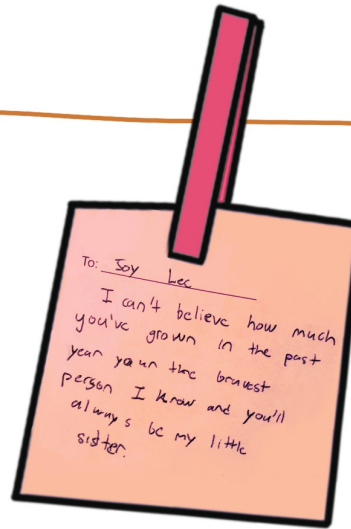 To: Joy Lee
I can't believe how much
you've grown in the past
year your the bravest
person I know and you'll
always be my little
sister.